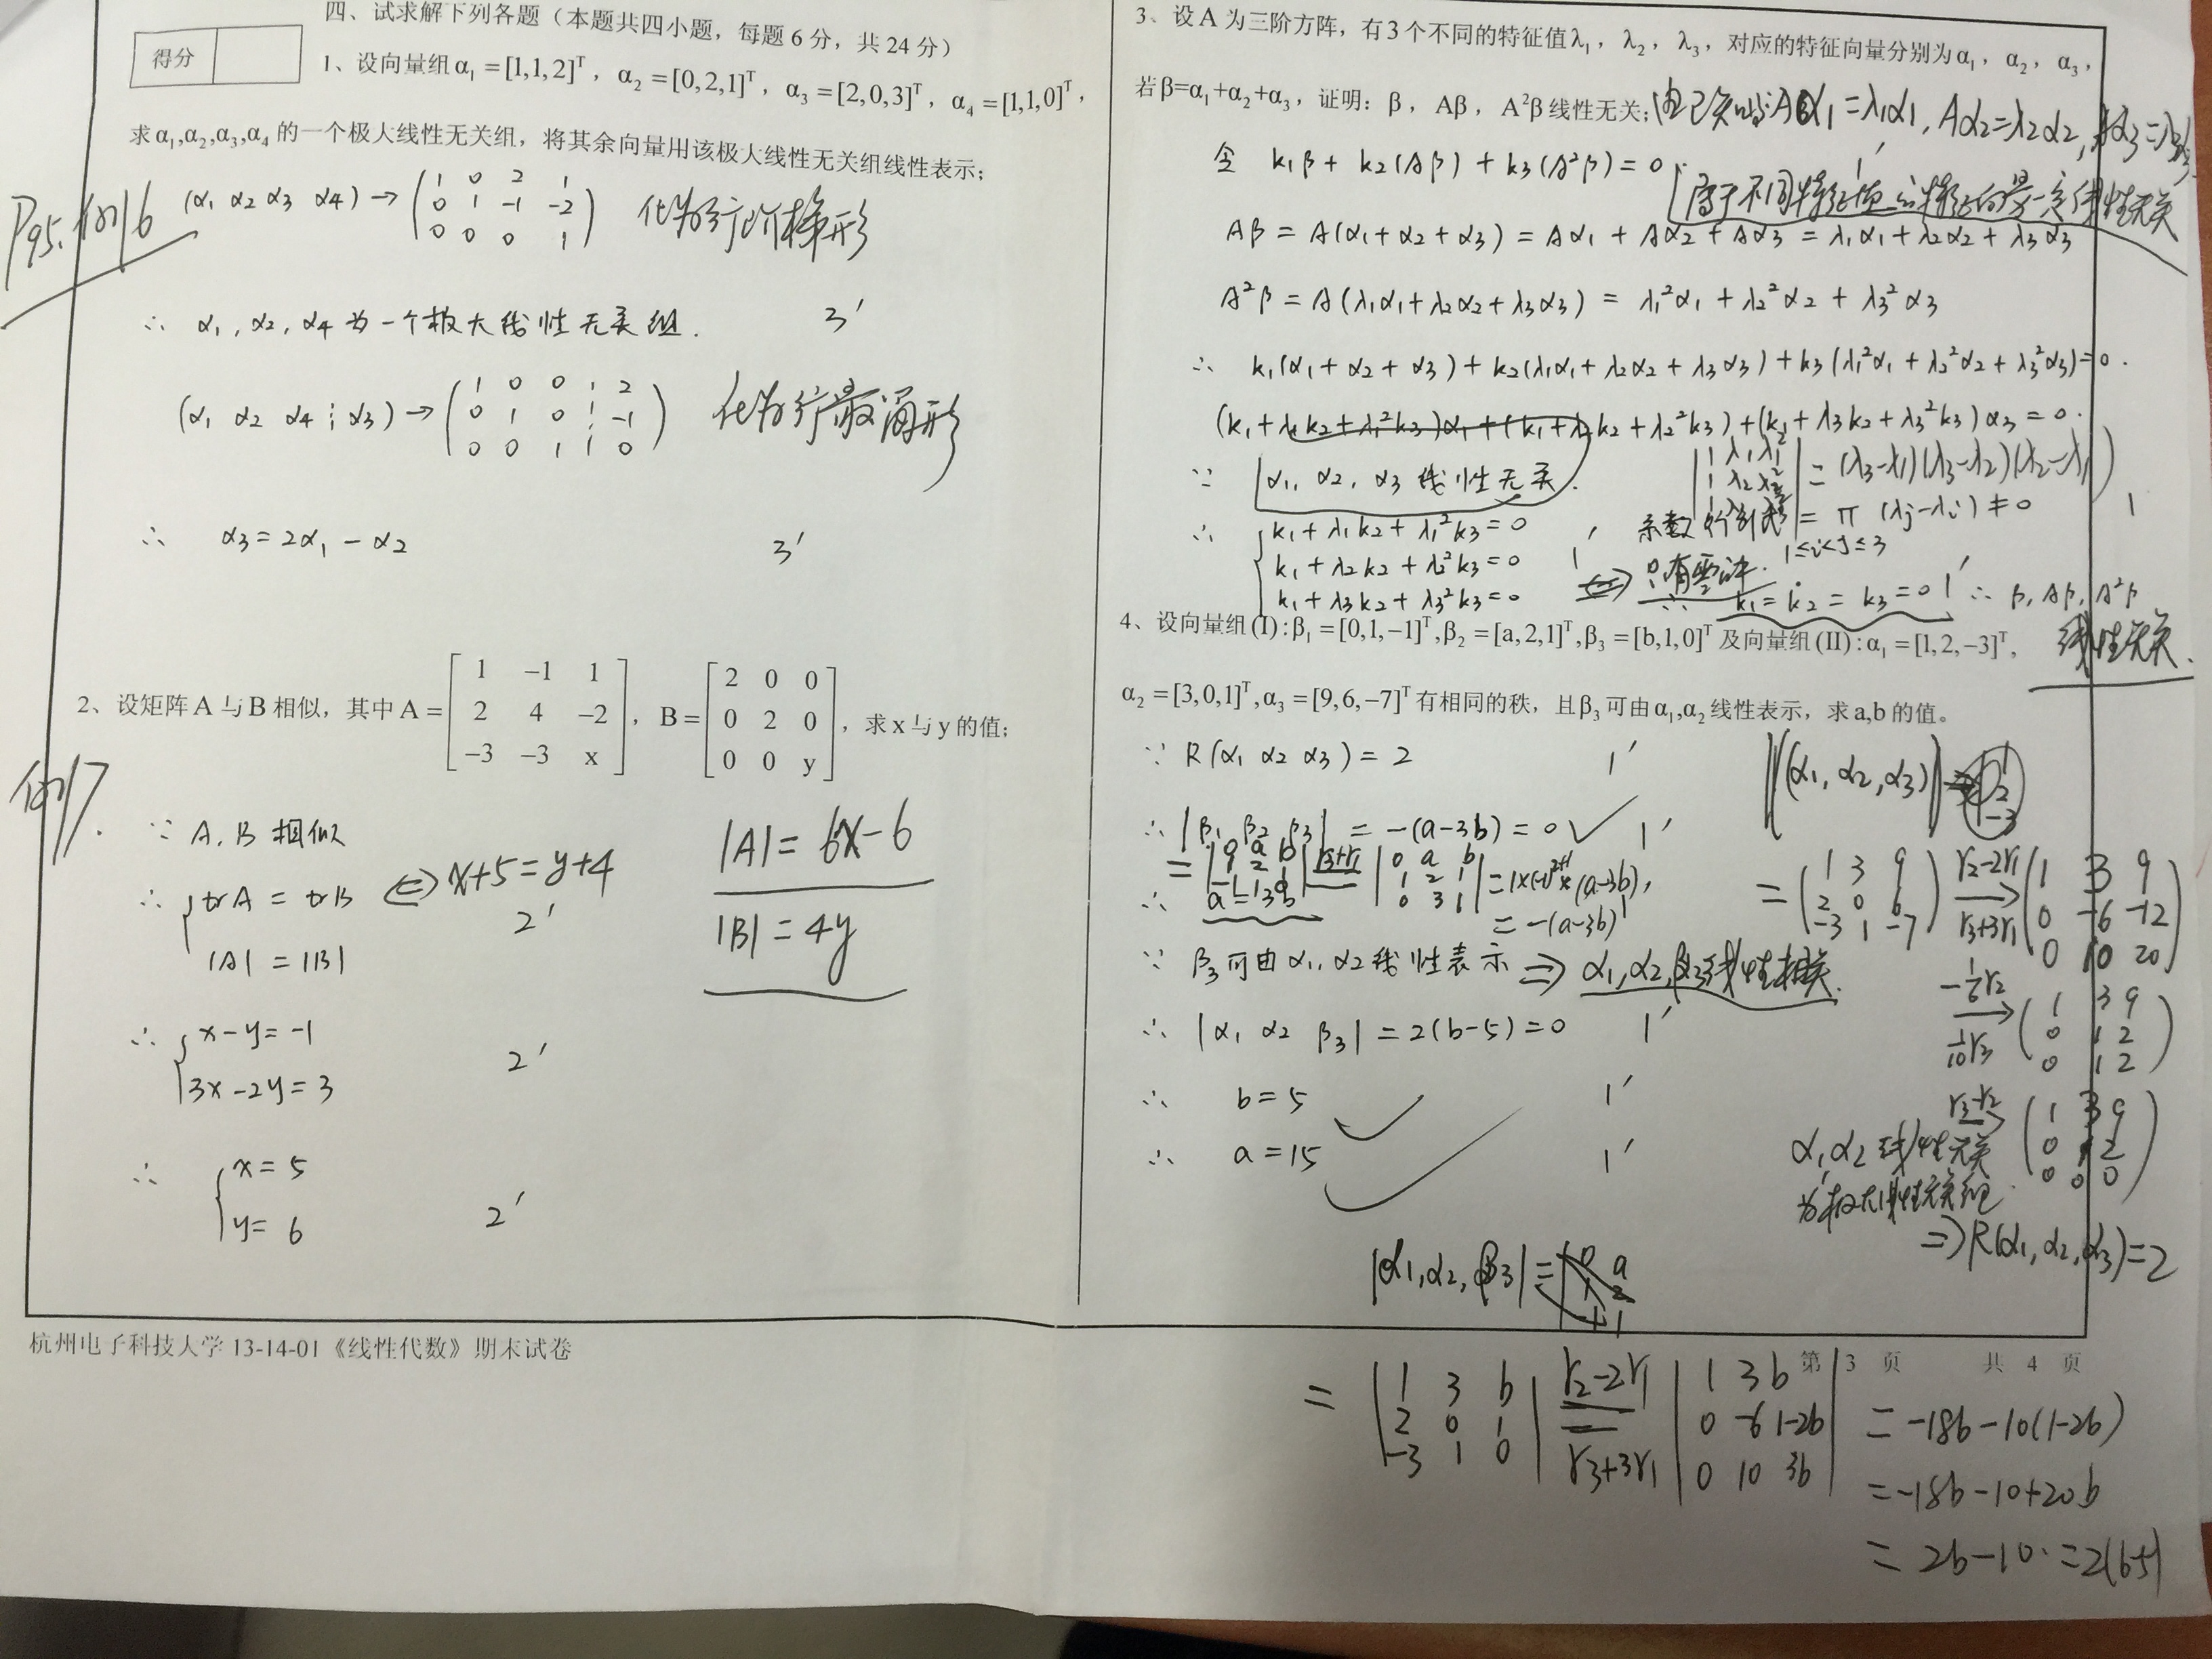 四、试求解下列各题（本题共四小题，每题6分，共24分）
得分
1、设向量组α₁=[1,1,2]ᵀ，α₂=[0,2,1]ᵀ，α₃=[2,0,3]ᵀ，α₄=[1,1,0]ᵀ，
求α₁,α₂,α₃,α₄的一个极大线性无关组，将其余向量用该极大线性无关组线性表示；
P95.例6
(α₁ α₂ α₃ α₄) →
1 0 2 1
0 1 -1 -2
0 0 0 1
化为行阶梯形
∴ α₁, α₂, α₄ 为一个极大线性无关组. 3′
(α₁ α₂ α₄ ¦ α₃) →
1 0 0 ¦ 2
0 1 0 ¦ -1
0 0 1 ¦ 0
化为行最简形
∴ α₃=2α₁-α₂ 3′
2、设矩阵A与B相似，其中A=
1 −1 1
2 4 −2
−3 −3 x
，B=
2 0 0
0 2 0
0 0 y
，求x与y的值；
例7.
∵ A, B 相似
∴ { trA = trB ⇔ x+5=y+4 2′
|A| = |B|
|A| = 6x-6
|B| = 4y
∴ { x-y=-1
3x-2y=3 2′
∴ { x=5
y=6 2′
杭州电子科技大学 13-14-01《线性代数》期末试卷
3、设A为三阶方阵，有3个不同的特征值λ₁，λ₂，λ₃，对应的特征向量分别为α₁，α₂，α₃，
若β=α₁+α₂+α₃，证明：β，Aβ，A²β线性无关；
由已知得Aα₁=λ₁α₁, Aα₂=λ₂α₂, Aα₃=λ₃α₃
令 k₁β + k₂(Aβ) + k₃(A²β) = 0. 1′
属于不同特征值的特征向量一定线性无关
Aβ = A(α₁+α₂+α₃) = Aα₁ + Aα₂ + Aα₃ = λ₁α₁+λ₂α₂+λ₃α₃
A²β = A(λ₁α₁+λ₂α₂+λ₃α₃) = λ₁²α₁+λ₂²α₂+λ₃²α₃
∴ k₁(α₁+α₂+α₃)+k₂(λ₁α₁+λ₂α₂+λ₃α₃)+k₃(λ₁²α₁+λ₂²α₂+λ₃²α₃)=0.
(k₁+λ₁k₂+λ₁²k₃)α₁+(k₁+λ₂k₂+λ₂²k₃)+(k₁+λ₃k₂+λ₃²k₃)α₃=0.
∵ α₁, α₂, α₃ 线性无关.
1 λ₁ λ₁²
1 λ₂ λ₂²
= (λ₃-λ₁)(λ₃-λ₂)(λ₂-λ₁)
系数行列式 = π (λj-λi) ≠ 0 1
1≤i<j≤3
∴ { k₁+λ₁k₂+λ₁²k₃=0
k₁+λ₂k₂+λ₂²k₃=0 1′
k₁+λ₃k₂+λ₃²k₃=0
⇔ 只有零解.
∴ k₁=k₂=k₃=0 1′ ∴ β, Aβ, A²β
线性无关.
4、设向量组(I):β₁=[0,1,−1]ᵀ,β₂=[a,2,1]ᵀ,β₃=[b,1,0]ᵀ及向量组(II):α₁=[1,2,−3]ᵀ,
α₂=[3,0,1]ᵀ,α₃=[9,6,−7]ᵀ有相同的秩，且β₃可由α₁,α₂线性表示，求a,b的值。
∵ R(α₁ α₂ α₃) = 2 1′
∴ |β₁ β₂ β₃| = -(a-3b) = 0 ✓ 1′
=
0 a b
1 2 1
-1 1 0
r₃+r₂
0 a b
1 2 1
0 3 1
=1×(-1)²⁺¹×(a-3b)
= -(a-3b)
∴ a=3b 1′
∵ β₃可由α₁, α₂线性表示 ⇒ α₁,α₂,β₃线性相关.
∴ |α₁ α₂ β₃| = 2(b-5)=0 1′
∴ b=5 1′
∴ a=15 1′
(α₁,α₂,α₃)
1
2
-3
=
1 3 9
2 0 6
-3 1 -7
r₂-2r₁
r₃+3r₁
1 3 9
0 -6 -12
0 10 20
-1/6r₂
1/10r₃
1 3 9
0 1 2
0 1 2
r₃-r₂
1 3 9
0 1 2
0 0 0
α₁,α₂线性无关
为极大线性无关组.
⇒R(α₁,α₂,α₃)=2
|α₁,α₂,β₃| =
0 a
1 2
-1 1
第 3 页 共 4 页
=
1 3 b
2 0 1
-3 1 0
r₂-2r₁
r₃+3r₁
1 3 b
0 -6 1-2b
0 10 3b
= -18b-10(1-2b)
= -18b-10+20b
= 2b-10 = 2(b-5)